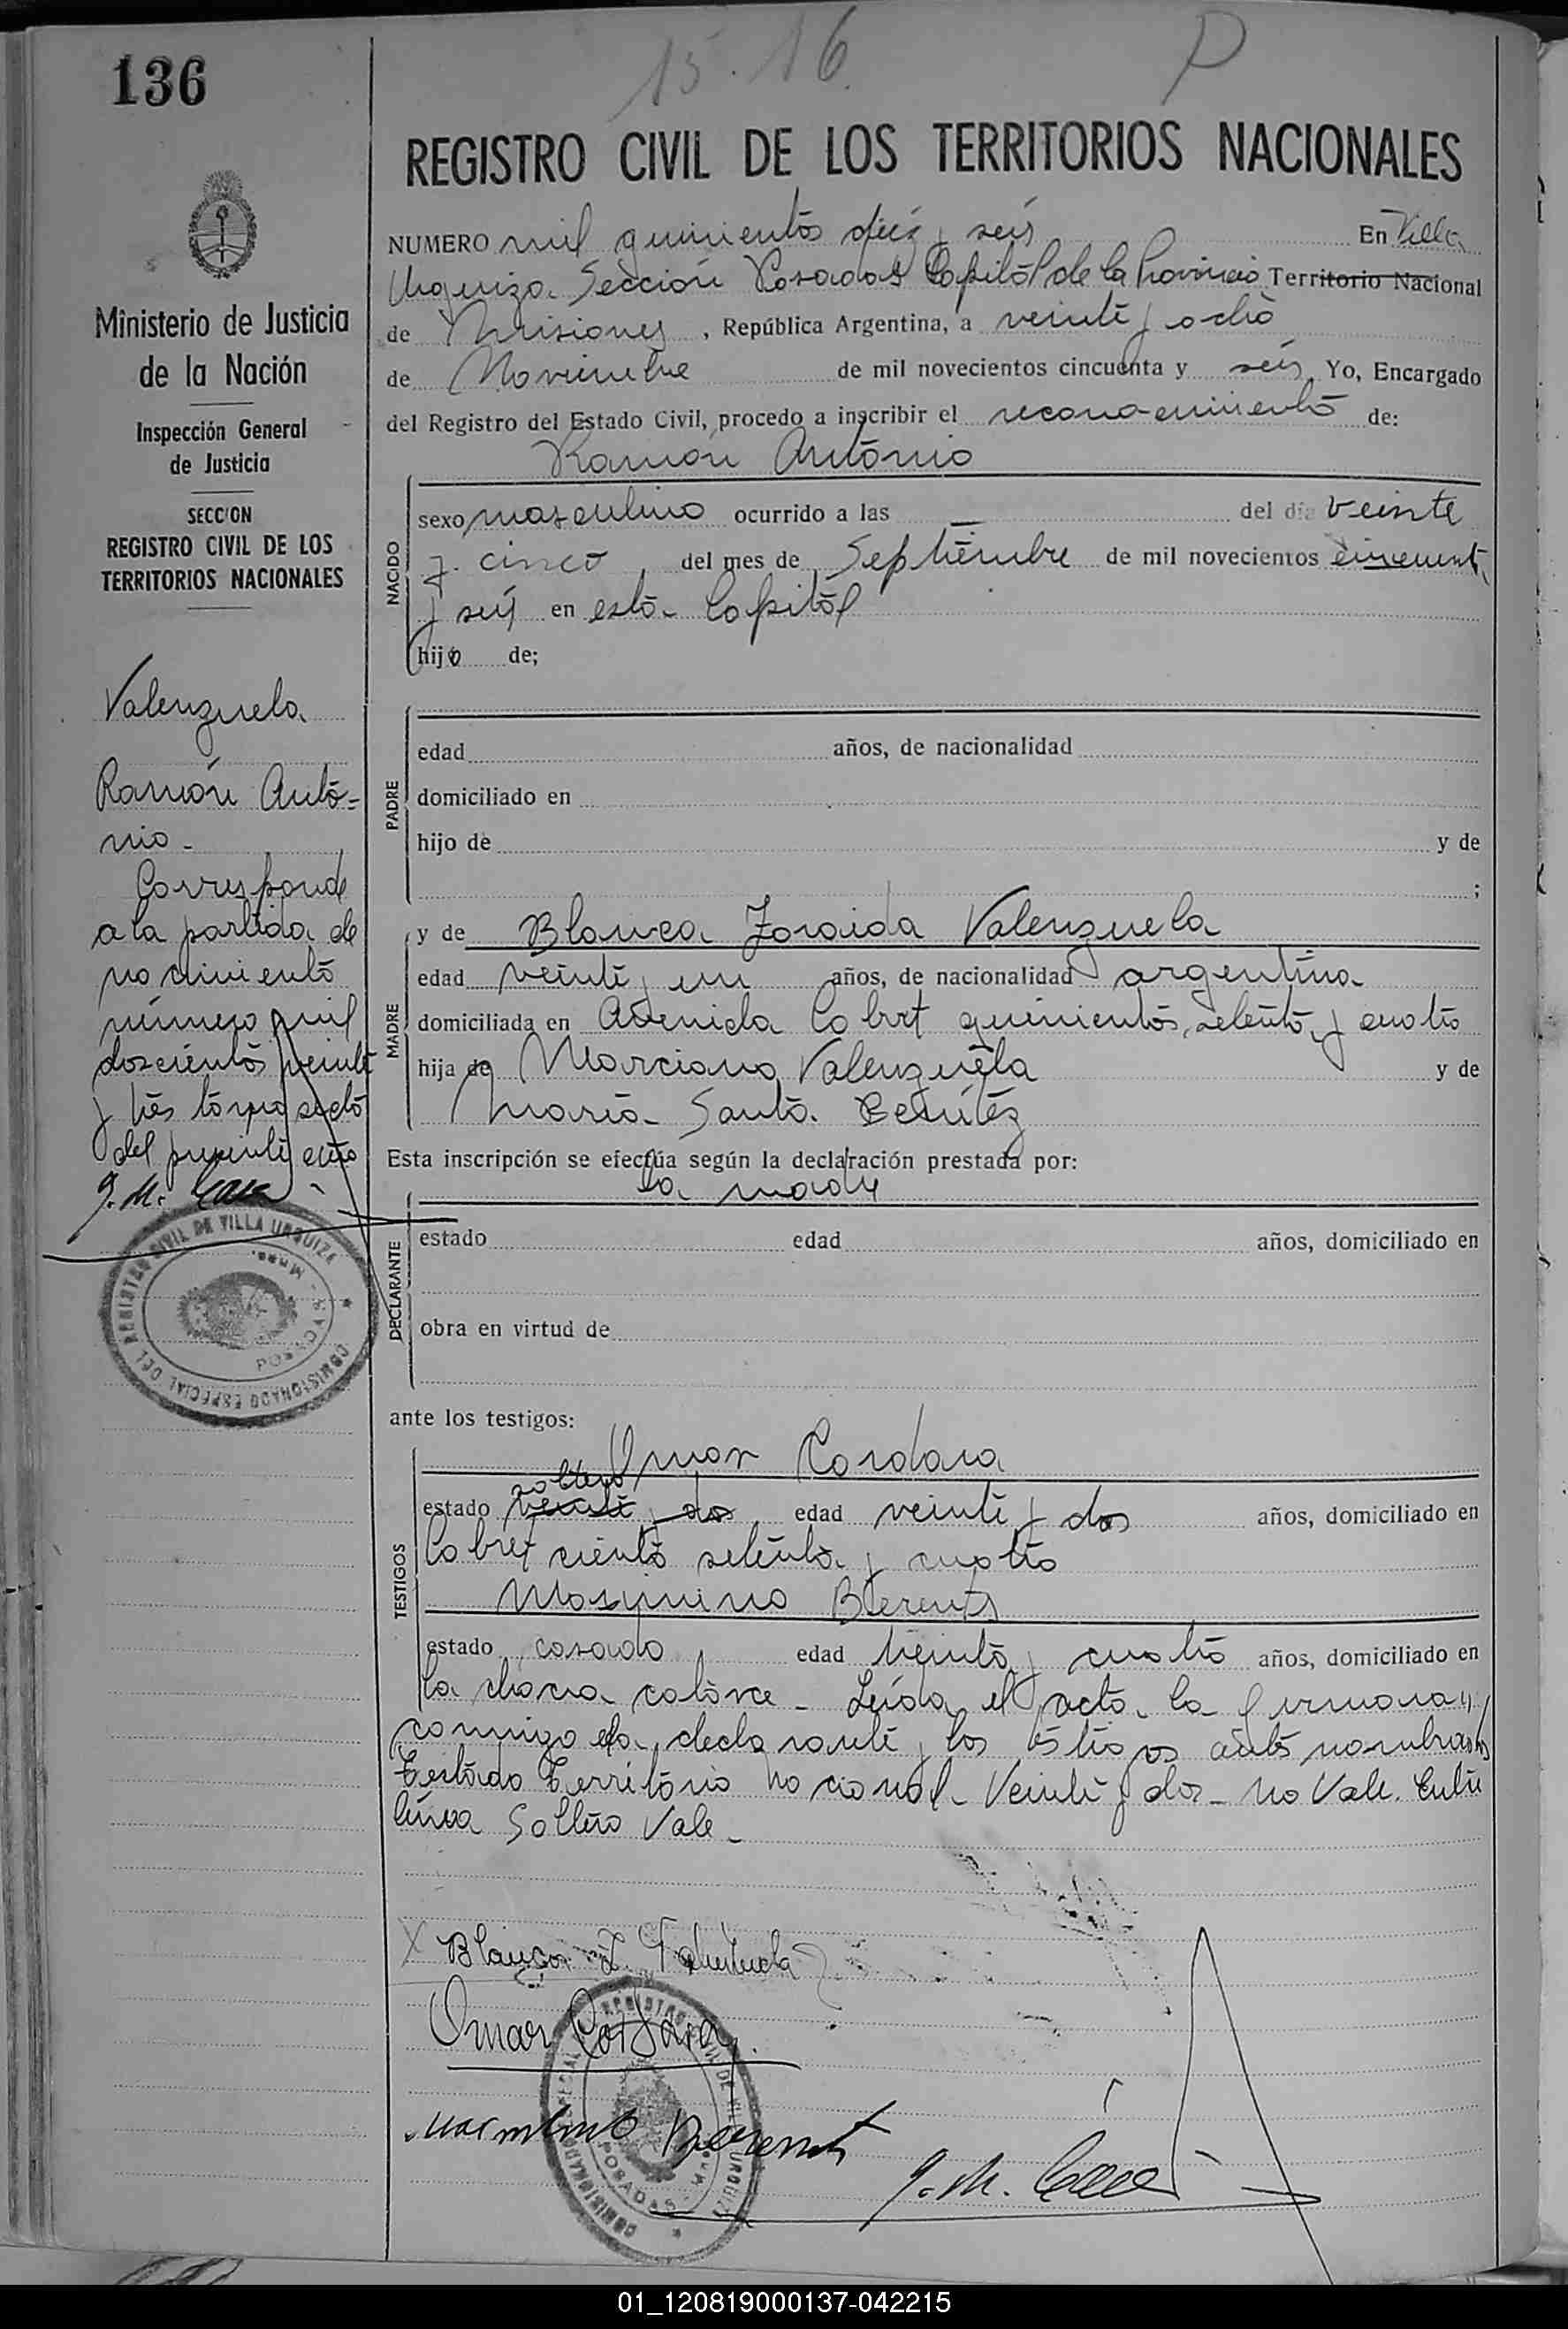 136
15.16
P
REGISTRO CIVIL DE LOS TERRITORIOS NACIONALES
Ministerio de Justicia
de la Nación
Inspección General
de Justicia
SECCION
REGISTRO CIVIL DE LOS
TERRITORIOS NACIONALES
Valenzuela
Ramón Anto-
nio -
Corresponde
a la partida de
nacimiento
número mil
doscientos veinte
y tres
del presente año
NUMERO mil quinientos diez y seis En Villa
Urquiza Sección Posadas Capital de la Provincia Territorio Nacional
de Misiones , República Argentina, a veinte y ocho
de Noviembre de mil novecientos cincuenta y seis Yo, Encargado
del Registro del Estado Civil, procedo a inscribir el reconocimiento de:
Ramón Antonio
NACIDO
sexo masculino ocurrido a las — del día veinte
y cinco del mes de Septiembre de mil novecientos cincuenta
y seis en esta Capital
hijo de;
PADRE
edad años, de nacionalidad
domiciliado en
hijo de y de
;
MADRE
y de Blanca Zoraida Valenzuela
edad veinte y un años, de nacionalidad argentina
domiciliada en Avenida Cabret quinientos setenta y cuatro
hija de Marciano Valenzuela y de
María Santa Benítez
Esta inscripción se efectúa según la declaración prestada por:
la madre
DECLARANTE
estado edad años, domiciliado en
obra en virtud de
ante los testigos:
TESTIGOS
Omar Cordara
soltero
estado veinte y dos edad veinte y dos años, domiciliado en
Cabret ciento setenta y cuatro
Maximino Berents
estado casado edad treinta y cuatro años, domiciliado en
la chacra catorce - Leída el acta la firmaron
conmigo la declarante y los testigos antes nombrados
Testado Territorio Nacional - Veinte y dos - no Vale. Entre
línea Soltero Vale -
COMISIONADO ESPECIAL DEL REGISTRO CIVIL DE VILLA URQUIZA
POSADAS - Mnes.
X Blanca Z. Valenzuela
Omar Cordara
REGISTRO CIVIL DE VILLA URQUIZA
POSADAS
01_120819000137-042215